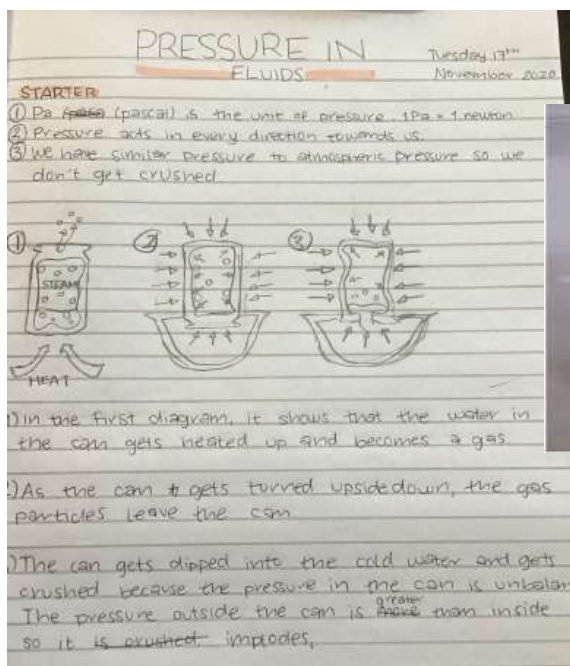 PRESSURE IN
FLUIDS
Tuesday 17th
November 2020
STARTER
① Pa (pascal) is the unit of pressure. 1Pa = 1 newton
② Pressure acts in every direction towards us.
③ We have similar pressure to atmospheric pressure so we
don't get crushed
①
②
③
STEAM
HEAT
)In the first diagram, it shows that the water in
the can gets heated up and becomes a gas
)As the can gets turned upside down, the gas
particles leave the can
)The can gets dipped into the cold water and gets
crushed because the pressure in the can is unbalan
The pressure outside the can is greater than inside
so it is crushed implodes,